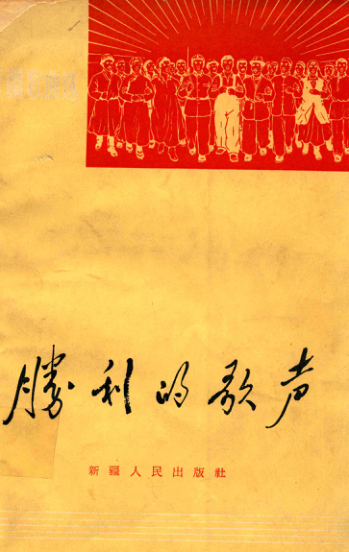 勝利的歌声
新疆人民出版社